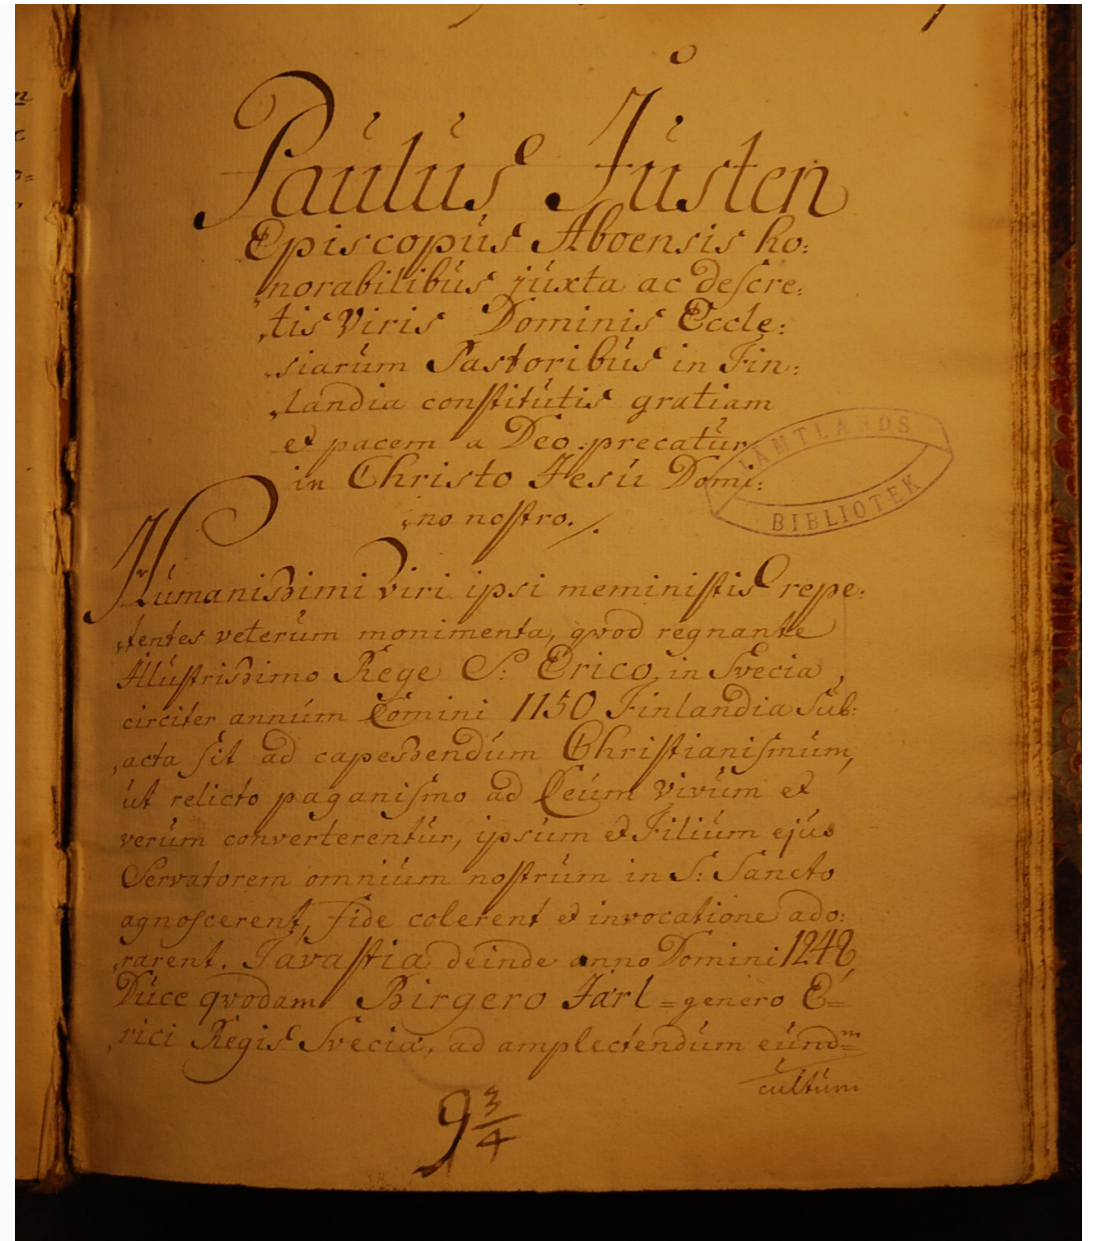 Paulus Justen
Episcopus Aboensis ho:
norabilibus juxta ac descre:
tis Viris Dominis Eccle:
siarum Pastoribus in Fin:
landia constitutis gratiam
et pacem a Deo precatur
in Christo Jesu Domi:
no nostro.
JAMTLANDS
BIBLIOTEK
Humanissimi Viri ipsi meministis repe:
tentes veterum monimenta, qvod regnante
Illustrissimo Rege S: Erico, in Svecia
circiter annum Domini 1150 Finlandia Sub:
acta sit ad capessendum Christianismum,
ut relicto paganismo ad Deum Vivum et
verum converterentur, ipsum et Filium ejus
Servatorem omnium nostrum in S: Sancto
agnoscerent, fide colerent et invocatione ado:
rarent. Tavastia deinde anno Domini 1248,
Duce qvodam Birgero Jarl = genero E=
rici Regis Svecia, ad amplectendum eundm=
cultum
9 3/4